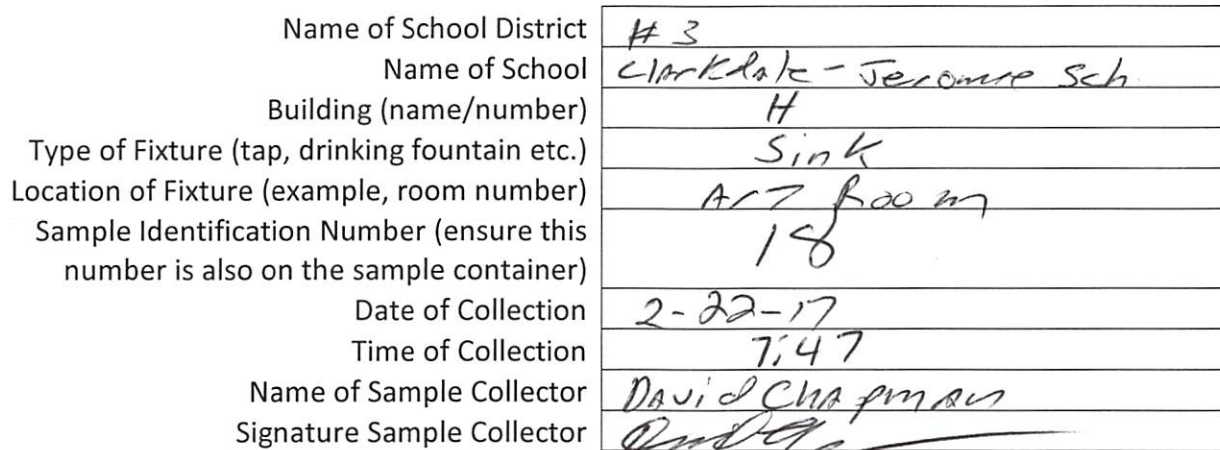 Name of School District # 3
Name of School Clarkdale-Jerome Sch
Building (name/number) H
Type of Fixture (tap, drinking fountain etc.) Sink
Location of Fixture (example, room number) Art Room
Sample Identification Number (ensure this
number is also on the sample container) 18
Date of Collection 2-22-17
Time of Collection 7:47
Name of Sample Collector David Chapman
Signature Sample Collector